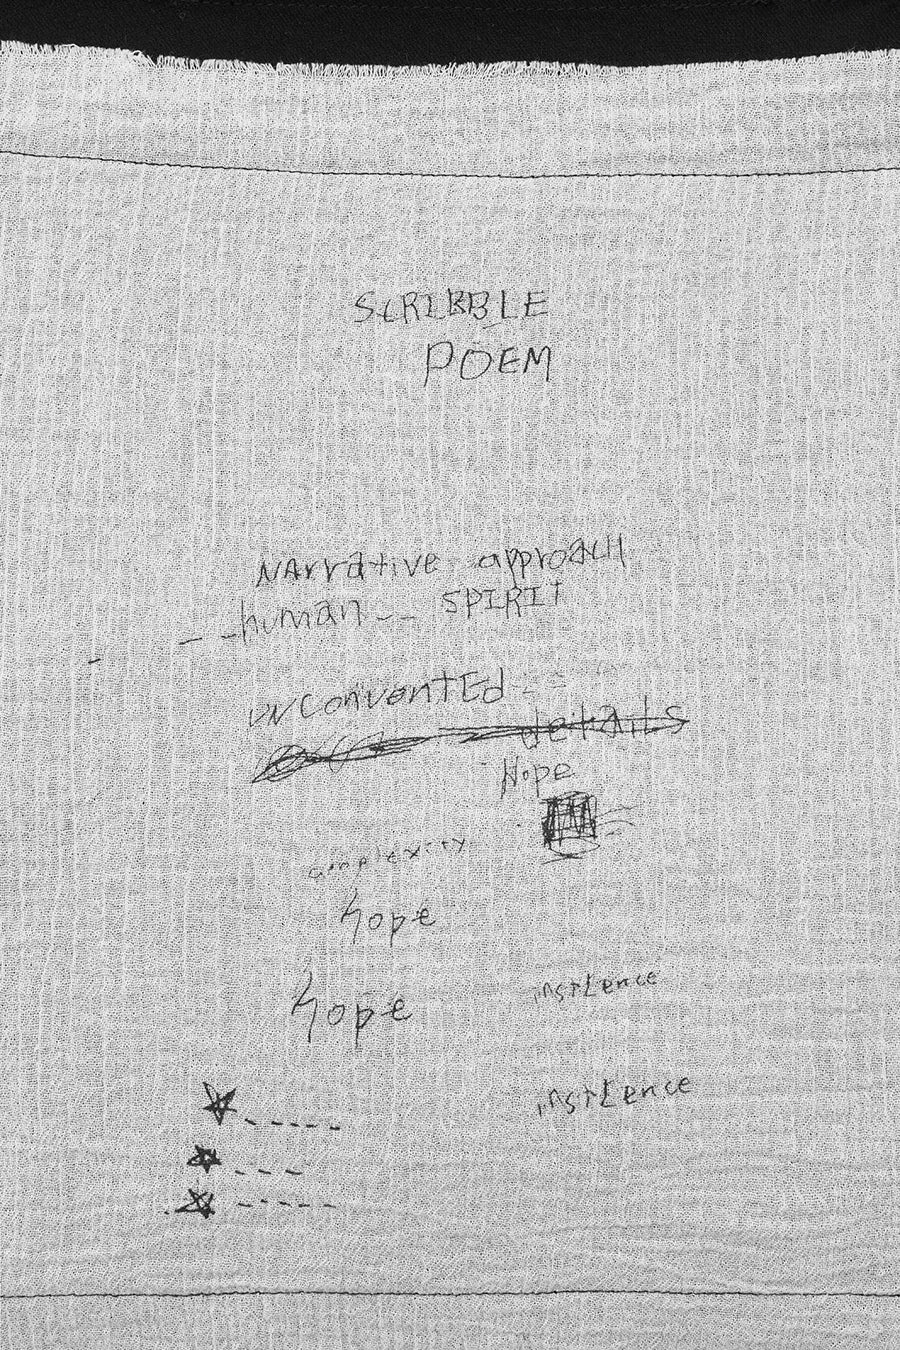 SCRIBBLE
POEM
NArrative approacH
human SPIRIT
uNConventEd
details
Hope
complexity
hope
hope